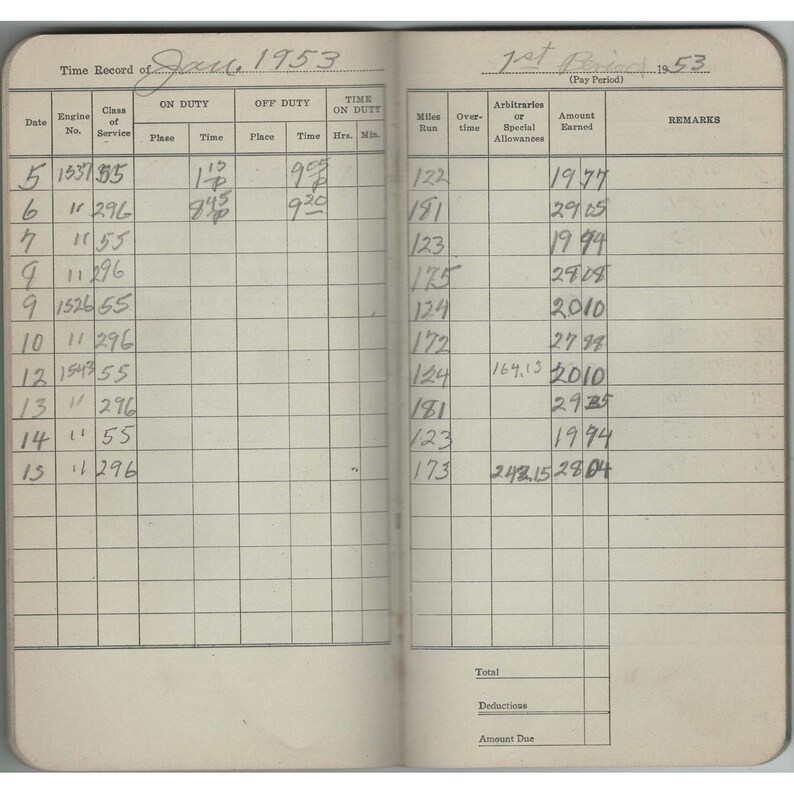 Time Record of Jan. 1953 1st Period 1953
(Pay Period)
Date Engine No. Class of Service ON DUTY OFF DUTY TIME ON DUTY Miles Run Over-time Arbitraries or Special Allowances Amount Earned REMARKS
Place Time Place Time Hrs. Min.
5 1537 55 1 15 p 9 05 p 122 19 77
6 " 296 8 45 p 9 20 181 29 05
7 " 55 123 19 94
8 " 296 175 28 08
9 1526 55 124 20 10
10 " 296 172 27 98
12 1543 55 124 164.13 20 10
13 " 296 181 29 35
14 " 55 123 19 94
15 " 296 173 242.15 28 04
Total
Deductions
Amount Due